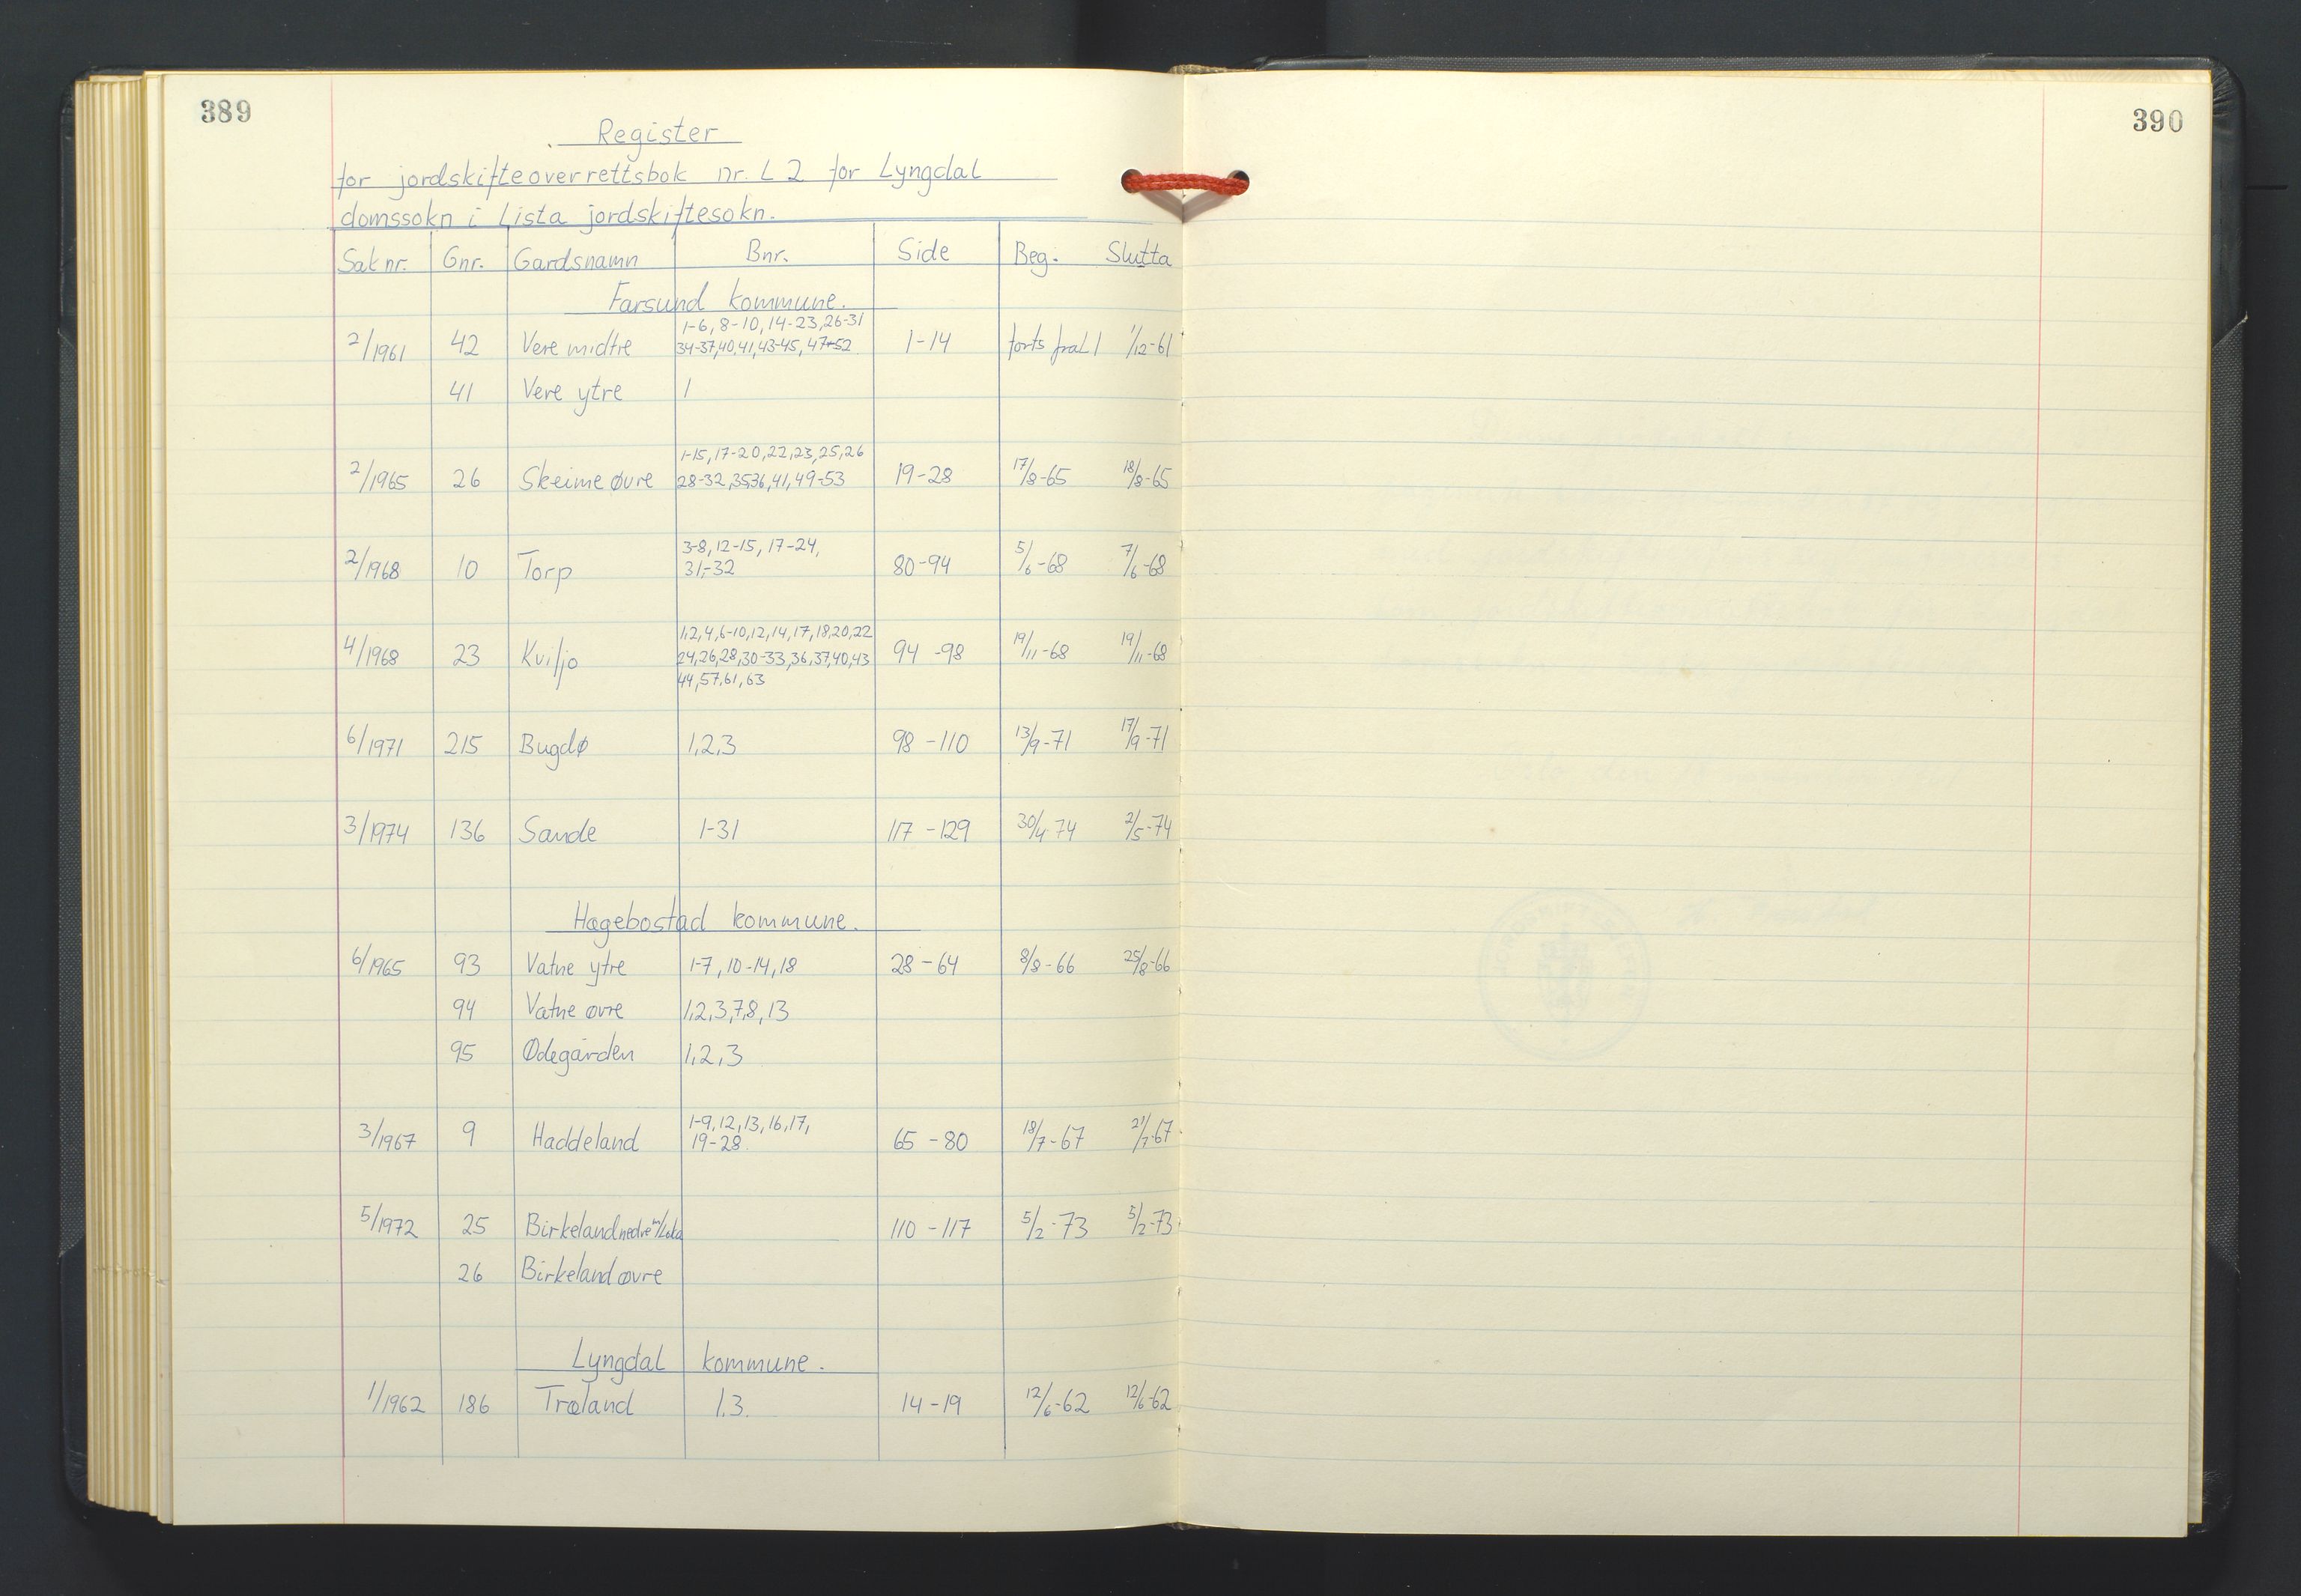 389
390
Register
for jordskifteoverrettsbok nr. L 2 for Lyngdal
domssokn i Lista jordskiftesokn.
Sak nr. Gnr. Gardsnamn Bnr. Side Beg. Slutta
Farsund kommune.
1-6, 8-10, 14-23, 26-31
2/1961 42 Vere midtre 34-37, 40, 41, 43-45, 47-52 1-14 forts fra L1 1/12-61
41 Vere ytre 1
1-15, 17-20, 22, 23, 25, 26
2/1965 26 Skeime øvre 28-32, 35 36, 41, 49-53 19-28 17/8-65 18/8-65
3-8, 12-15, 17-24,
2/1968 10 Torp 31,-32 80-94 5/6-68 7/6-68
1,2,4,6-10,12,14,17,18,20,22
4/1968 23 Kviljo 24,26,28,30-33,36,37,40,43 94-98 19/11-68 19/11-68
44,57,61,63
6/1971 215 Bugdø 1,2,3 98-110 13/9-71 17/9-71
3/1974 136 Sande 1-31 117-129 30/4 74 2/5-74
Hægebostad kommune.
6/1965 93 Vatne ytre 1-7, 10-14, 18 28-64 8/8-66 25/8-66
94 Vatne øvre 1,2,3,7,8,13
95 Ødegården 1,2,3
1-9,12,13,16,17,
3/1967 9 Haddeland 19-28. 65-80 18/7-67 21/7-67
5/1972 25 Birkeland nedre m/ 110-117 5/2-73 5/2-73
26 Birkeland øvre
Lyngdal kommune.
1/1962 186 Træland 1.3. 14-19 12/6-62 12/6-62